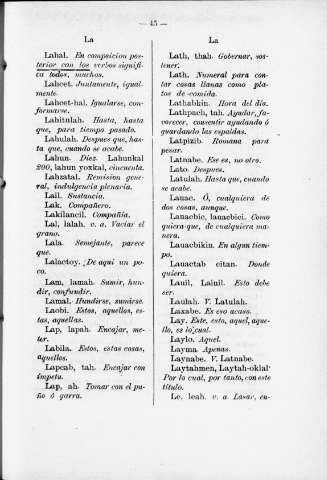 — 45 —
La
Lahal. En composicion pos-
terior con los verbos signifi-
ca todos, muchos.
Lahcet. Juntamente, igual-
mente.
Lahcet-hal. Igualarse, con-
formarse.
Lahitulah. Hasta, hasta
que, para tiempo pasado.
Lahulah. Despues que, has-
ta que, cuando se acabe.
Lahun. Diez. Lahunkal
200, lahun yoxkal, cincuenta.
Lahzatal. Remision gene-
ral, indulgencia plenaria.
Lail. Sustancia.
Lak. Compañero.
Lakilancil. Compañia.
Lal, lalah. v. a. Vaciar el
grano.
Lala. Semejante, parece
que.
Lalactoy. ¡De aqui un po-
co.
Lam, lamah. Sumir, hun-
dir, confundir.
Lamal. Hundirse, sumirse.
Laobi. Estos, aquellos, es-
tas, aquellas.
Lap, lapah. Encajar, me-
ter.
Labila. Estos, estas cosas,
aquellos.
Lapcab, tah. Encajar con
ímpetu.
Lap, ah. Tomar con el pu-
ño ó garra.
La
Lath, thah. Gobernar, sos-
tener.
Lath. Numeral para con-
tar cosas llanas como pla-
tos de comida.
Lathabkin. Hora del dia.
Lathpach, tah. Ayudar, fa-
vorecer, consentir ayudando ó
guardando las espaldas.
Latpizib. Romana para
pesar.
Latnabe. Ese es, no otro.
Lato. Despues.
Latulah. Hasta que, cuando
se acabe.
Lauac. Ó, cualquiera de
dos cosas, aunque.
Lauacbic, lauacbici. Como
quiera que, de cualquiera ma-
nera.
Lauacbikin. En algun tiem-
po.
Lauactab citan. Donde
quiera.
Lauil, Laiuil. Esto debe
ser.
Laulah. V. Latulah.
Laxabe. Es eso acaso.
Lay. Este, esto, aquel, aque-
llo, es lo cual.
Laylo. Aquel.
Layma. Apenas.
Laynabe. V. Latnabe.
Laytahmen, Laytah-oklal
Por lo cual, por tanto, con este
título.
Le, leah. v. a. Lazar, en-